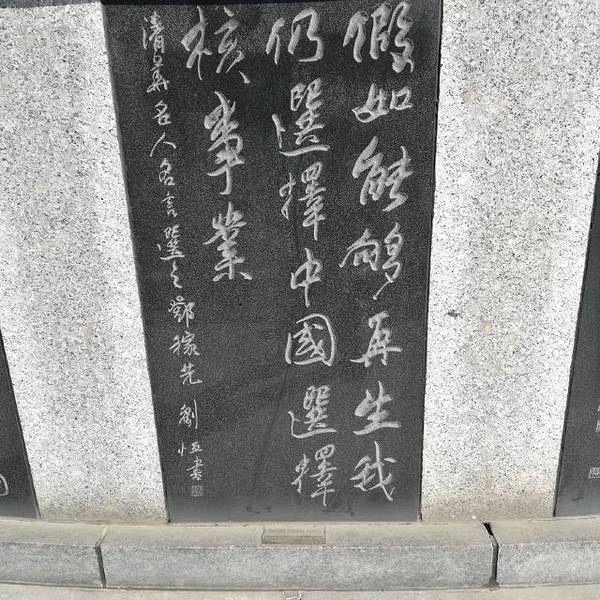 假如能够再生我
仍選擇中國選擇
核事業
清華名人名言選之鄧稼先 劉恒書